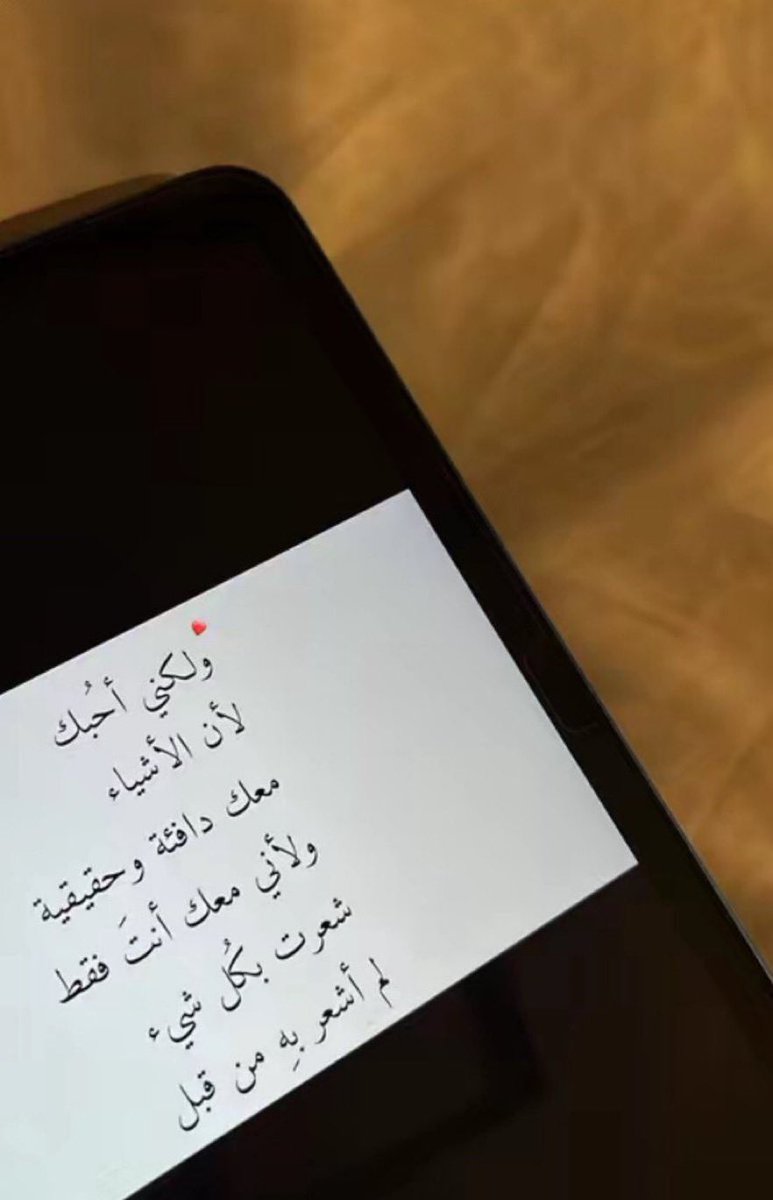 ولكني أحُبك
لأن الأشياء
معك دافئة وحقيقية
ولأني معك أنتَ فقط
شعرت بكُل شيء
لم أشعر بهِ من قبل